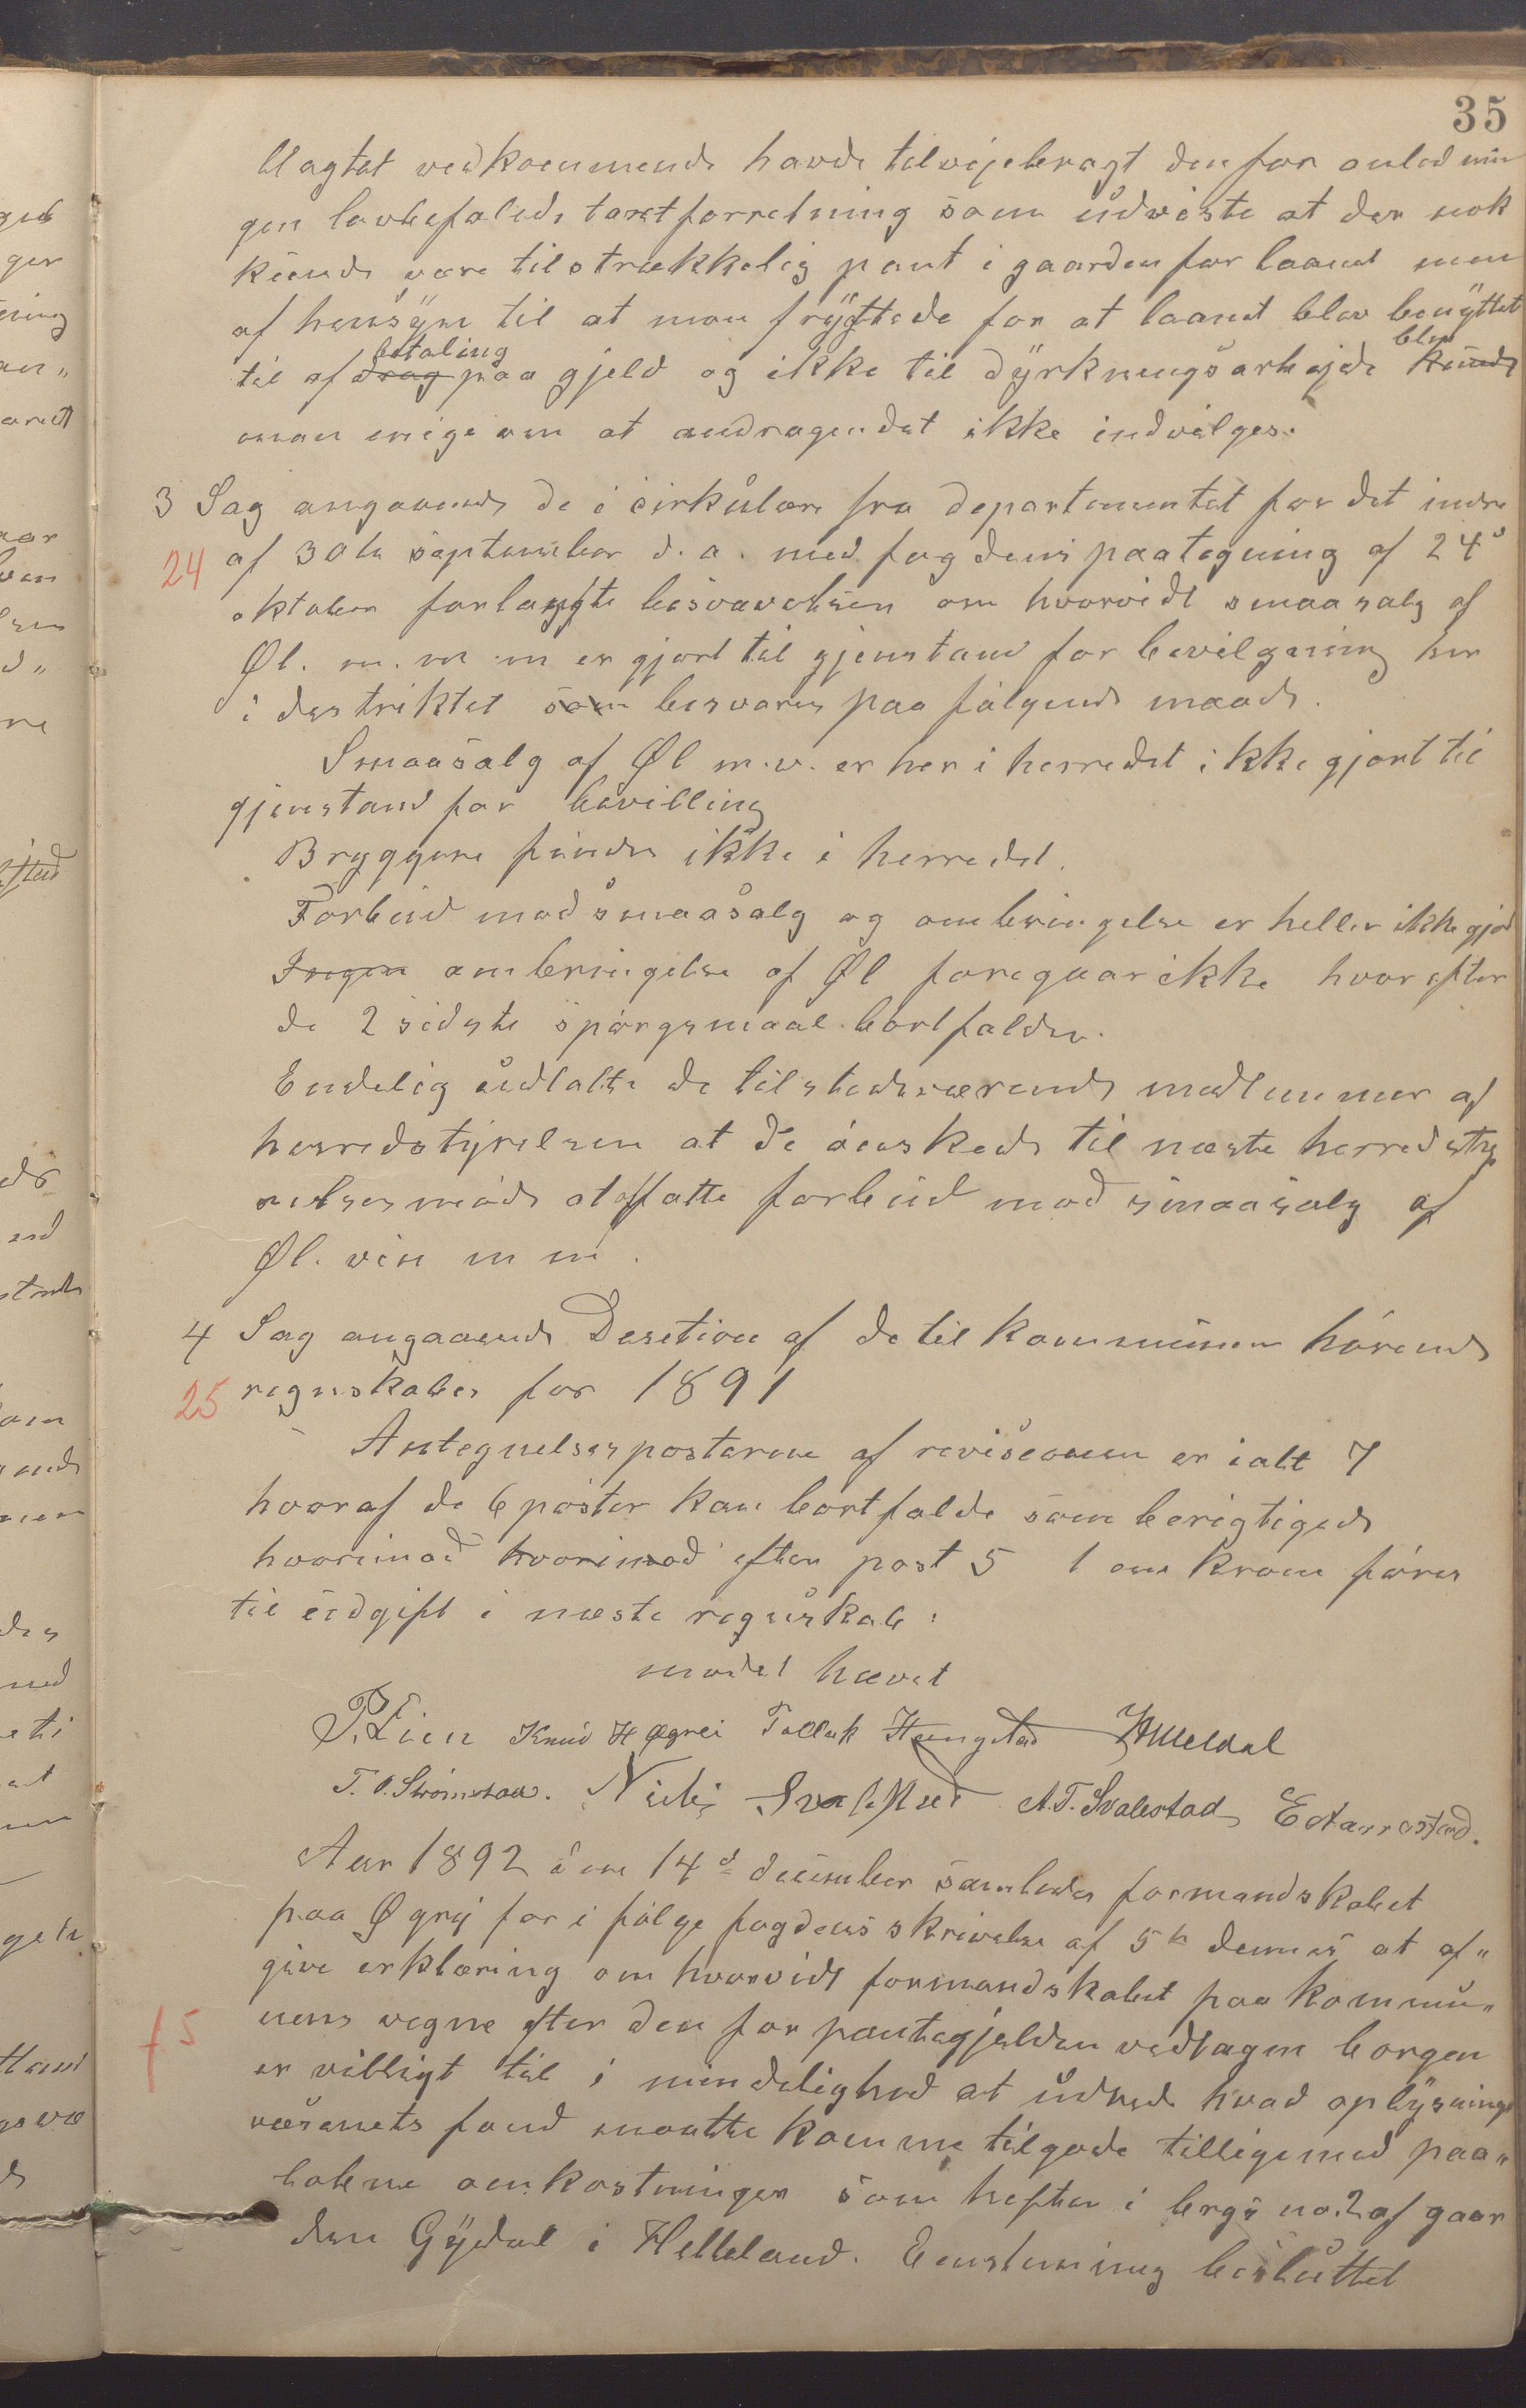 35
Uagtet vedkommende havde tilvejebragt den for anlednin
gen lovbefalede taxtforretning som udviste at der nok
kunde være tilstrækkelig pant i gaarden for laanet men
af hensyn til at man frygtede for at laanet blev benyttet
til afdrag betaling paa gjeld og ikke til dyrkningsarbejde kunde blev
man enige om at andragendet ikke indvilges.
3 Sag angaaende de i cirkulære fra departementet for det indre
24 af 30te september d. a. med fogdens paategning af 24de
oktober forlangte besvarelsen om hvorvidt smaasalg af
Øl. m. m er gjort til gjenstand for bevilgning her
i destriktet som besvares paa følgende maade.
Smaasalg af Øl m.v. er her i herredet ikke gjort til
gjenstand for bevilling
Bryggere findes ikke i herredet.
Forbud mod smaasalg og ombringelse er heller ikke gjort
Ingen ombringelse af Øl foregaar ikke hvorefter
de 2 sidste spørgsmaal bortfalder.
Endelig udtalte de tilstedeværende medlemmer af
herredstyrelsen at de ønskede til næste herredsty
relsesmøde at affatte forbud mod smaasalg af
Øl. vin m m.
4 Sag angaaende Desetion af de til kommunen hørende
25 regnskaber for 1891
Antegnelsesposterne af revisionen er ialt 7
hvoraf de 6 poster kan bortfalde som berigtigede
hvorimod hvorimod efter post 5 1 en krone føres
til udgift i næste regnskab:
mødet hævet
P. Lien Knud H Øgrei Tollak Haugstad HMeldal
T. O. Strømstad. Nils Svalestad A. T. Svalestad E Aarrestad.
Aar 1892 den 14de december samledes formandskabet
paa Øgrej for i følge fogdens skrivelse af 5te dennes at af"
give erklæring om hvorvidt formandskabet paa kommu"
nens vegne efter den for pantegjelden vedtagne borgen
15 er villigt til i mindelighed at udrede hvad oplysnings
væsenets fond maatte komme tilgode tilligemed paa"
løbne omkostninger som hefter i brgs no. 2 af gaar
den Gydal i Helleland. Eenstemmig besluttet